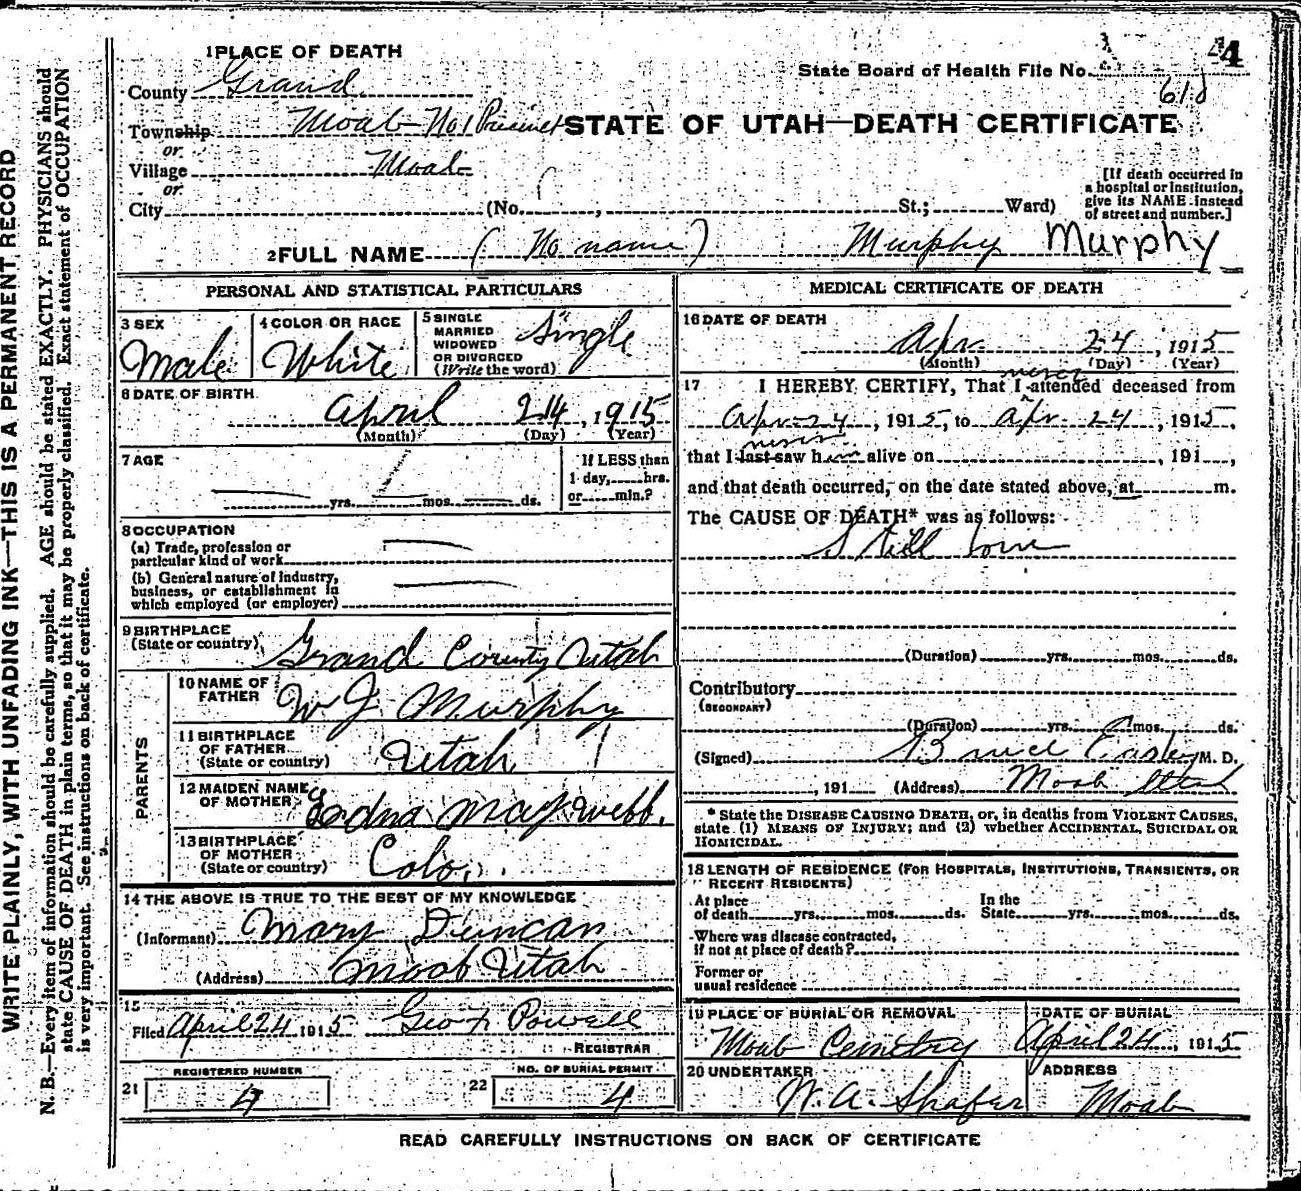 4
1 PLACE OF DEATH
State Board of Health File No.
61
County Grand
Township Moab No 1 Precinct
STATE OF UTAH—DEATH CERTIFICATE
or
Village Moab
or
City (No. , St.; Ward)
[If death occurred in
a hospital or institution,
give its NAME instead
of street and number.]
2 FULL NAME (No name) Murphy Murphy
PERSONAL AND STATISTICAL PARTICULARS
3 SEX
Male
4 COLOR OR RACE
White
5 SINGLE
MARRIED
WIDOWED
OR DIVORCED
(Write the word)
Single
6 DATE OF BIRTH
April 24, 1915
(Month) (Day) (Year)
7 AGE
yrs. mos. ds.
If LESS than
1 day, hrs.
or min.?
8 OCCUPATION
(a) Trade, profession or
particular kind of work
(b) General nature of industry,
business, or establishment in
which employed (or employer)
9 BIRTHPLACE
(State or country)
Grand County Utah
PARENTS
10 NAME OF
FATHER
W J Murphy
11 BIRTHPLACE
OF FATHER
(State or country)
Utah
12 MAIDEN NAME
OF MOTHER
Edna May Webb.
13 BIRTHPLACE
OF MOTHER
(State or country)
Colo.
14 THE ABOVE IS TRUE TO THE BEST OF MY KNOWLEDGE
(Informant) Mary Duncan
(Address) Moab Utah
15
Filed April 24 1915 Geo Powell
REGISTRAR
21
REGISTERED NUMBER
4
22
NO. OF BURIAL PERMIT
4
MEDICAL CERTIFICATE OF DEATH
16 DATE OF DEATH
Apr. 24, 1915
(Month) (Day) (Year)
never
17 I HEREBY CERTIFY, That I attended deceased from
Apr 24, 1915, to Apr 24, 1915,
never
that I last saw him alive on , 191 ,
and that death occurred, on the date stated above, at m.
The CAUSE OF DEATH* was as follows:
Still born
(Duration) yrs. mos. ds.
Contributory
(SECONDARY)
(Duration) yrs. mos. ds.
(Signed) M. D.
, 191 (Address) Moab Utah
* State the DISEASE CAUSING DEATH, or, in deaths from VIOLENT CAUSES,
state (1) MEANS OF INJURY; and (2) whether ACCIDENTAL, SUICIDAL OR
HOMICIDAL.
18 LENGTH OF RESIDENCE (FOR HOSPITALS, INSTITUTIONS, TRANSIENTS, OR
RECENT RESIDENTS)
At place
of death yrs. mos. ds.
In the
State yrs. mos. ds.
Where was disease contracted,
if not at place of death?
Former or
usual residence
19 PLACE OF BURIAL OR REMOVAL
Moab Cemetry
DATE OF BURIAL
April 24, 1915
20 UNDERTAKER
W. A. Shafer
ADDRESS
Moab
READ CAREFULLY INSTRUCTIONS ON BACK OF CERTIFICATE
WRITE PLAINLY, WITH UNFADING INK—THIS IS A PERMANENT RECORD
N. B.—Every item of information should be carefully supplied. AGE should be stated EXACTLY. PHYSICIANS should
state CAUSE OF DEATH in plain terms, so that it may be properly classified. Exact statement of OCCUPATION
is very important. See instructions on back of certificate.